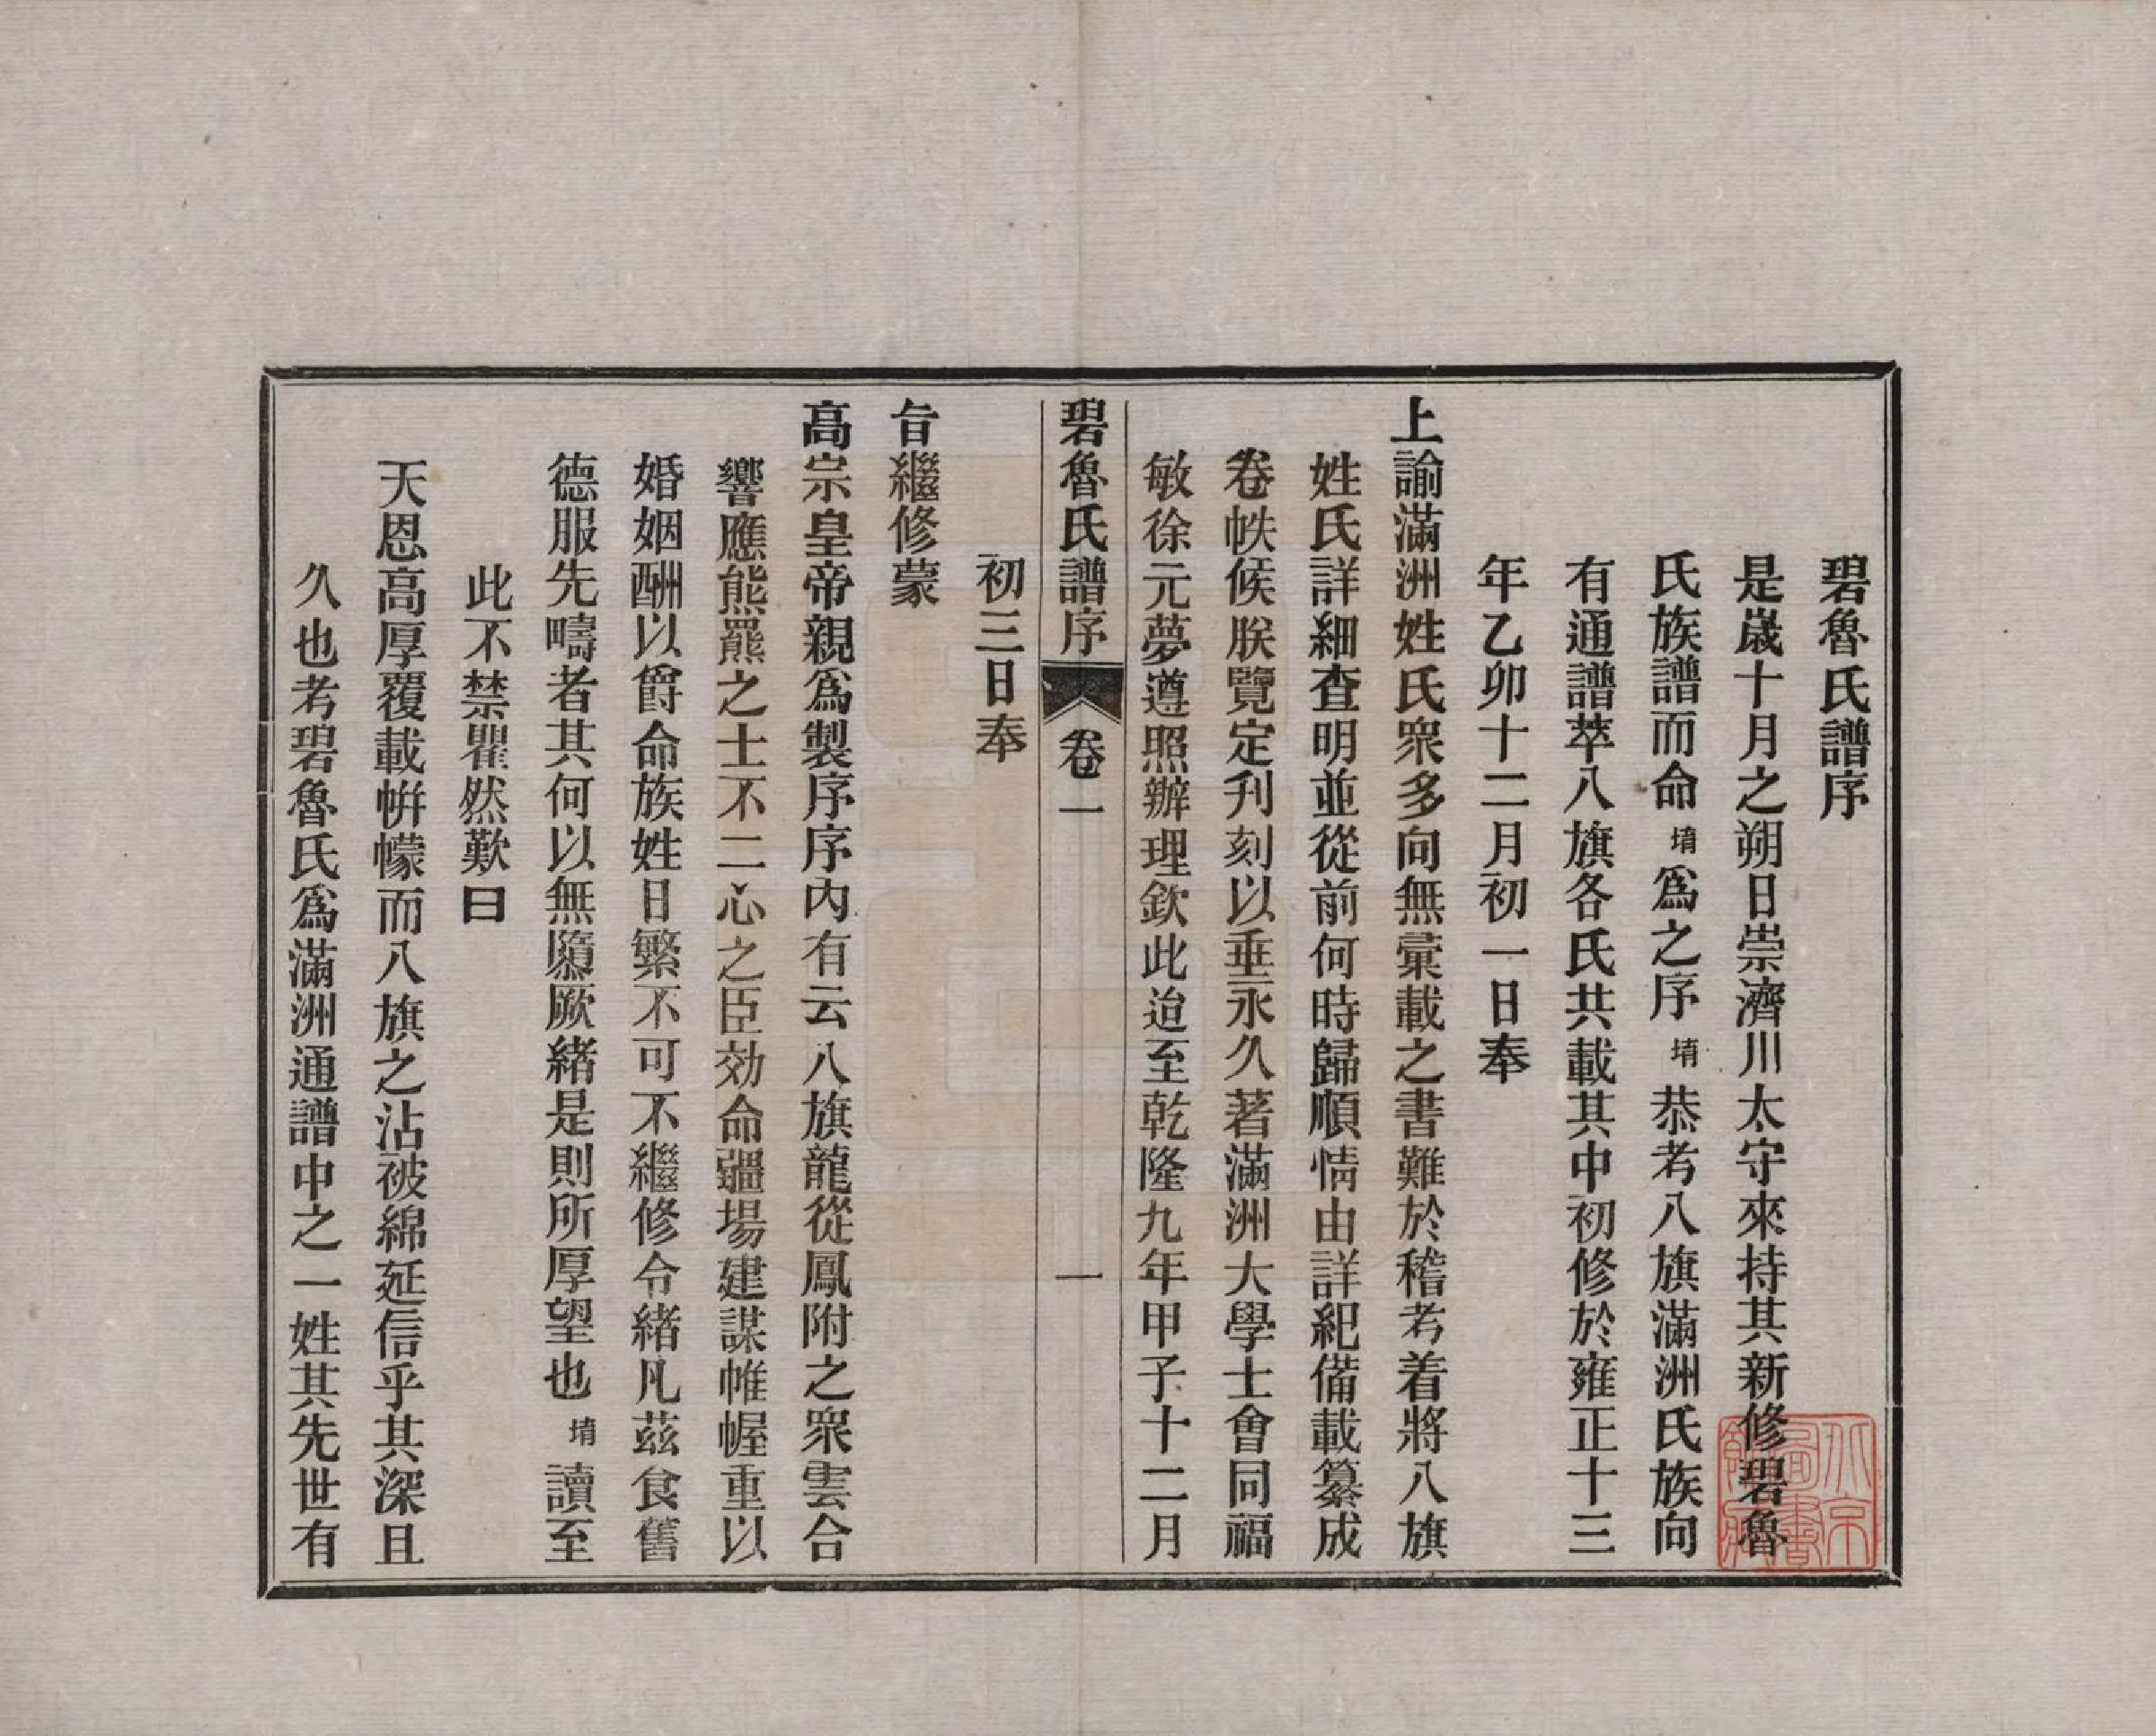 碧魯氏譜序
是嵗十月之朔日崇濟川太守來持其新修碧魯
氏族譜而命堉爲之序堉恭考八旗滿洲氏族向
有通譜萃八旗各氏共載其中初修於雍正十三
年乙卯十二月初一日奉
上諭滿洲姓氏衆多向無彚載之書難於稽考着將八旗
姓氏詳細查明並從前何時歸順情由詳紀備載纂成
卷帙候朕覽定刋刻以垂永久著滿洲大學士會同福
敏徐元夢遵照辦理欽此迨至乾隆九年甲子十二月
碧魯氏譜序 卷一 一
初三日奉
旨繼修蒙
高宗皇帝親爲製序序內有云八旗龍從鳳附之衆雲合
響應熊羆之士不二心之臣効命疆場建謀帷幄重以
婚姻酬以爵命族姓日繁不可不繼修令緒凡茲食舊
德服先疇者其何以無隳厥緒是則所厚望也堉讀至
此不禁瞿然歎曰
天恩高厚覆載帡幪而八旗之沾被綿延信乎其深且
久也考碧魯氏爲滿洲通譜中之一姓其先世有
北京圖書館藏